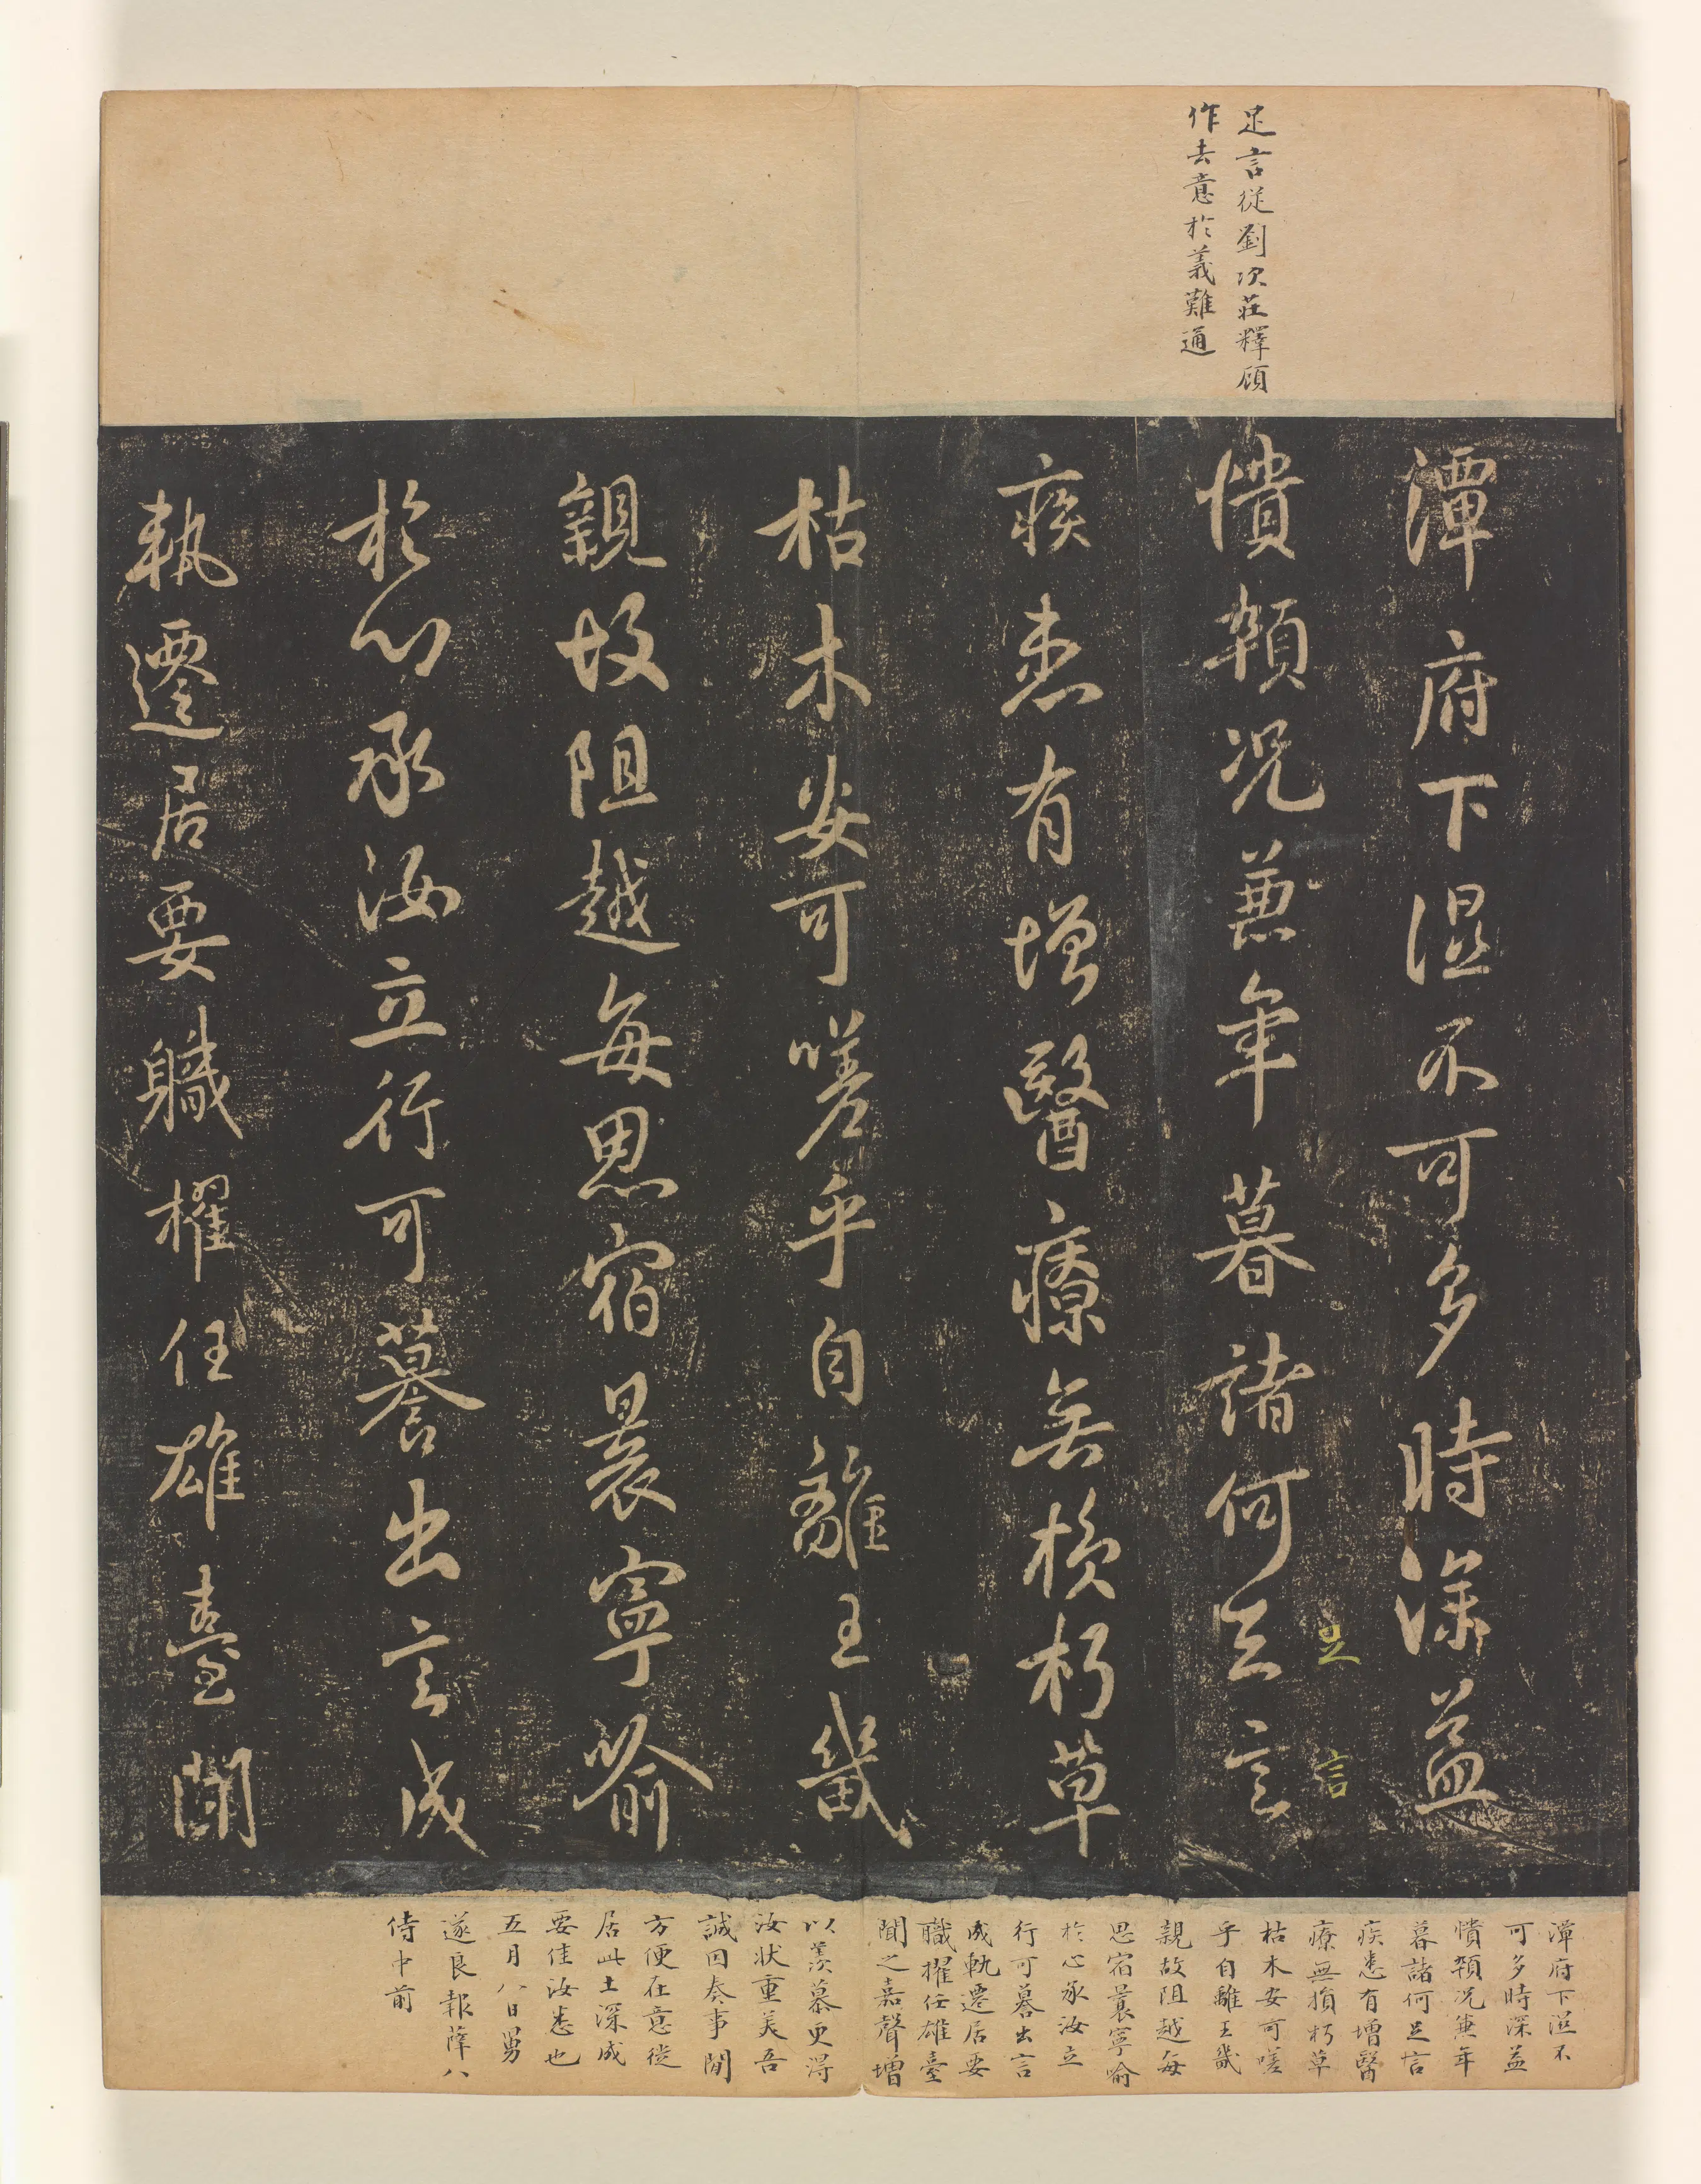 足言從劉次莊釋顧
作去意於義難通
潭府下濕不可多時深益
憒顇况兼年暮諸何足言
足言
疾患有增醫療無損朽草
枯木安可嗟乎自離王畿
親故阻越每思宿晨寧喻
於心承汝立行可纂出言成
執遷居要職櫂任雄臺閑
潭府下溼不
可多時深益
憒顇况兼年
暮諸何足言
疾患有增醫
療無損朽草
枯木安可嗟
乎自離王畿
親故阻越每
思宿晨寧喻
於心承汝立
行可纂出言
成軌遷居要
職擢任雄臺
聞之嘉聲增
以羨慕更得
汝狀重美吾
誠因奏事閒
方便在意從
居此土深成
要佳汝悉也
五月八日舅
遂良報薛八
侍中前